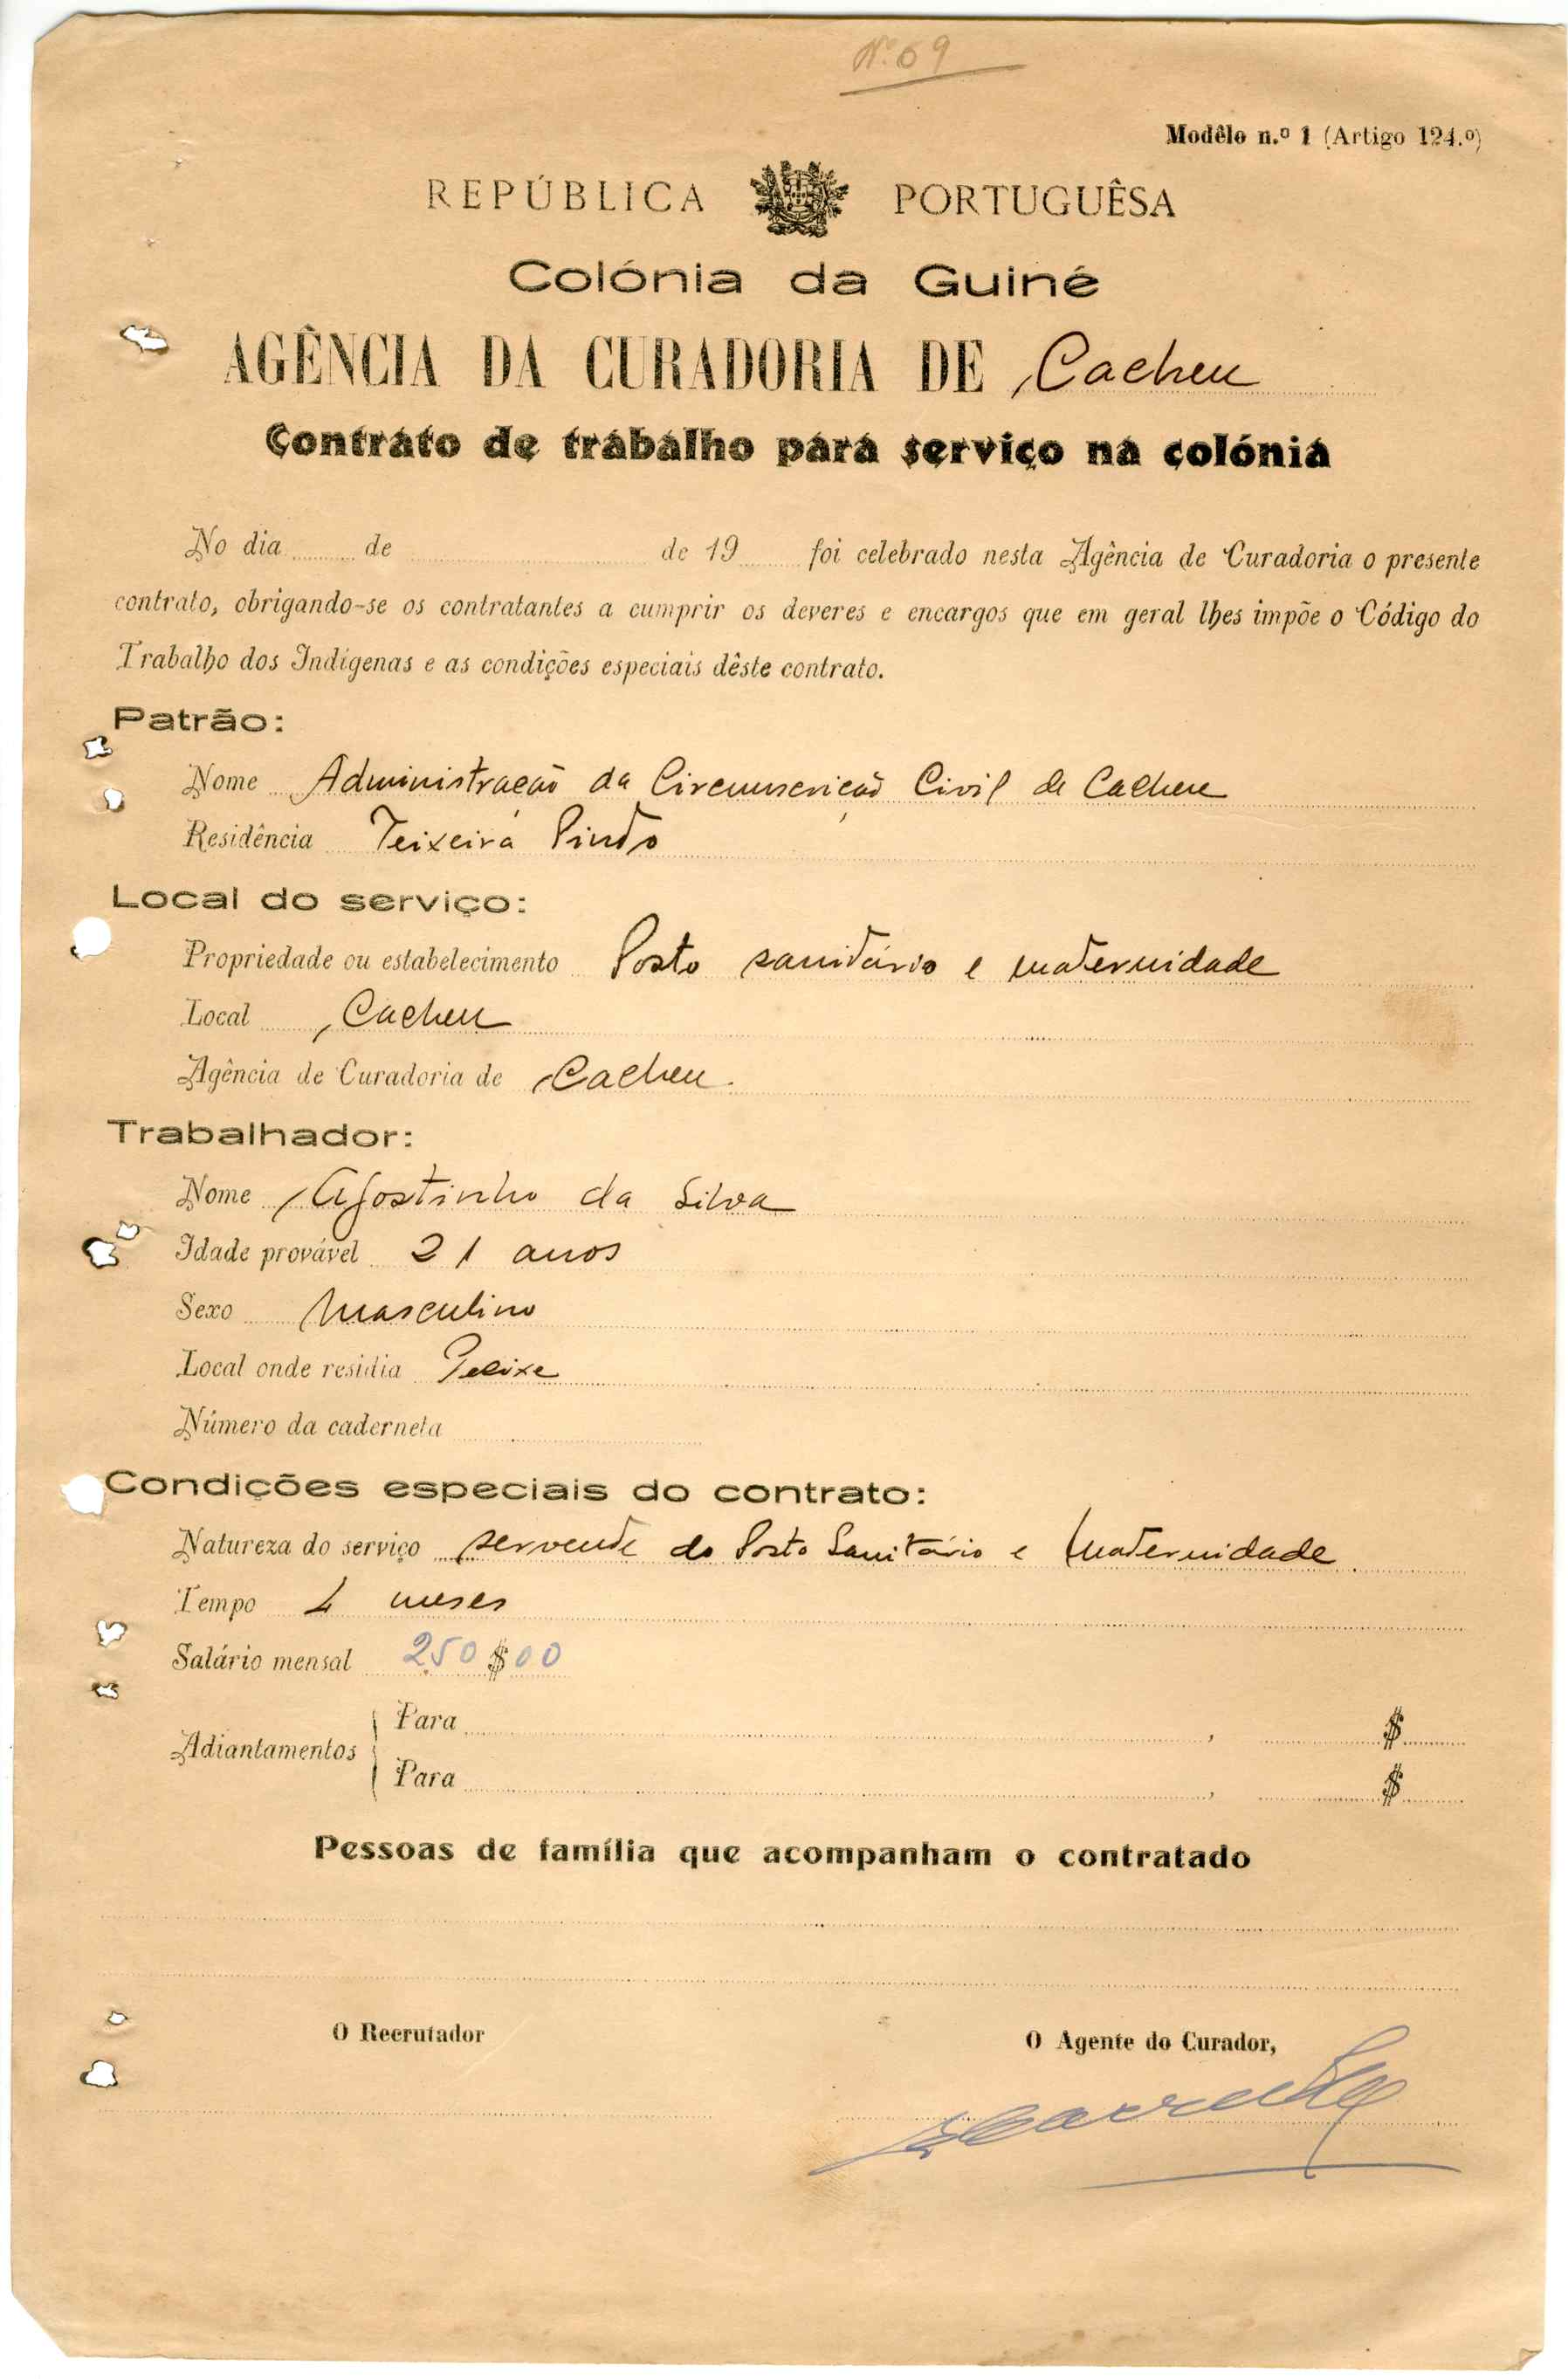 Nº 69
Modêlo n.º 1 (Artigo 124.º)
REPÚBLICA PORTUGUÊSA
Colónia da Guiné
AGÊNCIA DA CURADORIA DE Cacheu
Contrato de trabalho para serviço na colónia
No dia de de 19 foi celebrado nesta Agência de Curadoria o presente
contrato, obrigando-se os contratantes a cumprir os deveres e encargos que em geral lhes impõe o Código do
Trabalho dos Indígenas e as condições especiais dêste contrato.
Patrão:
Nome Administração da Circunscrição Civil de Cacheu
Residência Teixeira Pinto
Local do serviço:
Propriedade ou estabelecimento Posto sanitário e maternidade
Local Cacheu
Agência de Curadoria de Cacheu.
Trabalhador:
Nome Agostinho da Silva
Idade provável 21 anos
Sexo Masculino
Local onde residia
Número da caderneta
Condições especiais do contrato:
Natureza do serviço servente do Posto Sanitário e Maternidade
Tempo 4 meses
Salário mensal 250$00
Adiantamentos { Para , $
Para , $
Pessoas de família que acompanham o contratado
O Recrutador O Agente do Curador,